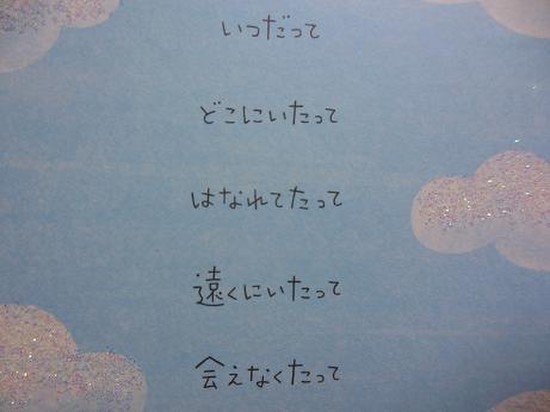 いつだって
どこにいたって
はなれてたって
遠くにいたって
会えなくたって